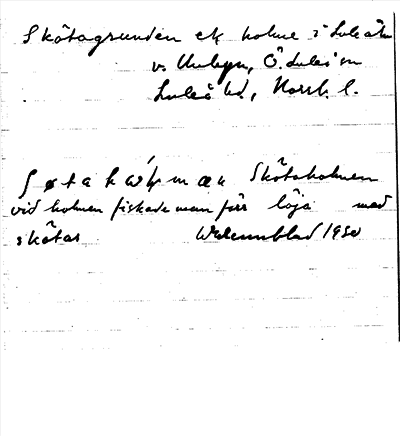 Skötagrunden ek holme i Luleälv
v. Unbyn, Ö. Luleå sn
Luleå hd, Norrb. l.
ʃøta Skötaholmen
vid holmen fiskade man förr löja med
skötar Wadennblad 1950